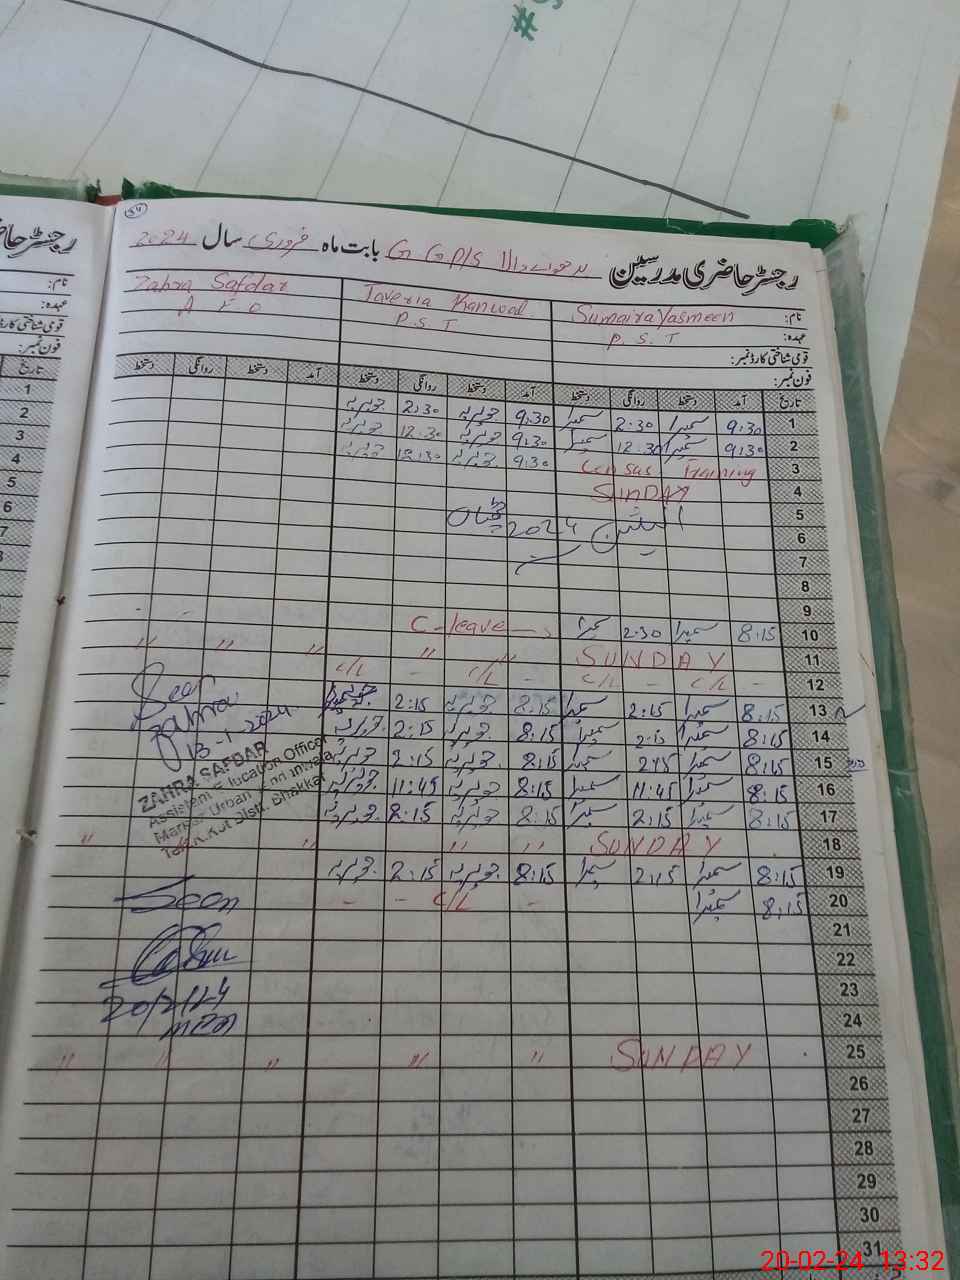 54
رجسٹر حاضری مدرسین G GP/S بابت ماہ فروری سال 2024
نام: Sumaira Yasmeen Javeria Kanwal Zahra Safdar
عہدہ: P.S.T P.S.T A E O
قومی شناختی کارڈ نمبر:
فون نمبر:
تاریخ آمد دستخط روانگی دستخط آمد دستخط روانگی دستخط آمد دستخط روانگی دستخط
1 9:30 سمیرا 2:30 سمیرا 9:30 جویریہ 2:30 جویریہ
2 9:30 سمیرا 12:30 سمیرا 9:30 جویریہ 12:30 جویریہ
3 Census Training 9:30 جویریہ 12:30 جویریہ
4 SUNDAY
5 الیکشن 2024
6
7
8
9
10 8:15 سمیرا 2:30 سمیرا C-leave
11 SUNDAY " " " " "
12 C/L - C/L - C/L - C/L
13 8:15 سمیرا 2:15 سمیرا 8:15 جویریہ 2:15 جویریہ
14 8:15 سمیرا 2:15 سمیرا 8:15 جویریہ 2:15 جویریہ
15 8:15 سمیرا 2:15 سمیرا 8:15 جویریہ 2:15 جویریہ
16 8:15 سمیرا 11:45 سمیرا 8:15 جویریہ 11:45 جویریہ
17 8:15 سمیرا 2:15 سمیرا 8:15 جویریہ 2:15 جویریہ
18 SUNDAY " " " " "
19 8:15 سمیرا 2:15 سمیرا 8:15 جویریہ 2:15 جویریہ
20 8:15 سمیرا - C/L - -
21
22
23
24
25 SUNDAY " " " " "
26
27
28
29
30
31
Seen
Zahra
13-1-2024
ZAHRA SAFDAR
Assistent Education Officer
Markaz Urban
Teh. K.Kot Distt. Bhakkar
Seen
20/2/24
رجسٹر حا
نام:
عہدہ:
قومی شناختی کارڈ
فون نمبر:
تاریخ
1
2
3
4
5
6
7
20-02-24 13:32